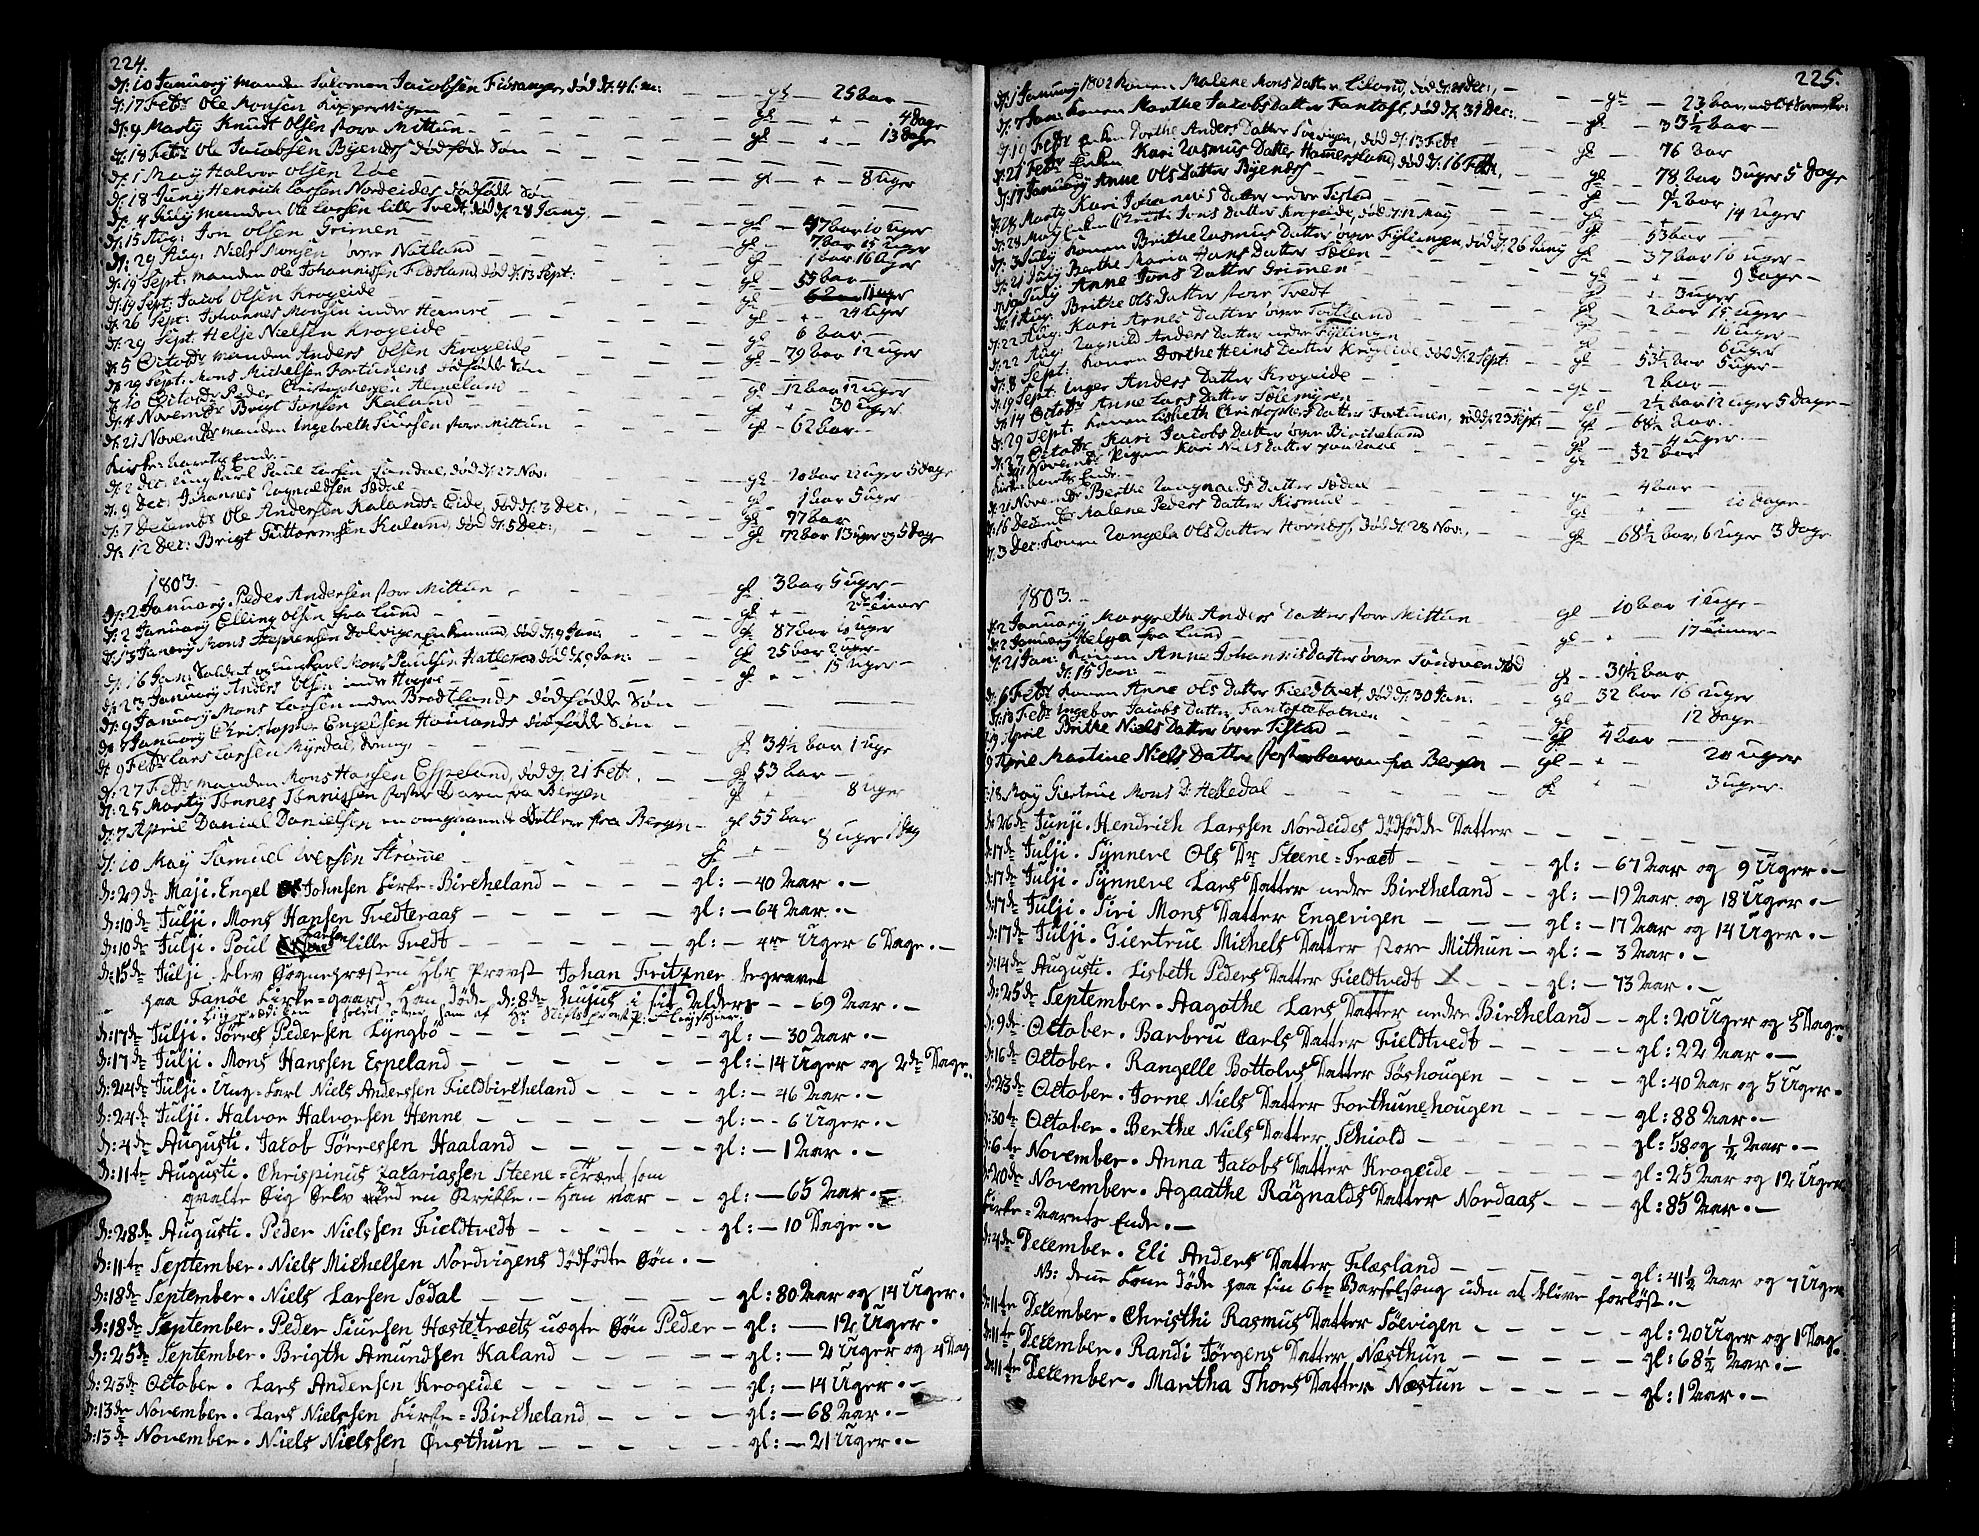 224.
d: 10 Januarÿ manden Salomon Jacobsen Fiøsanger, død gl — 25 aar —
d: 17 Febr Ole Monsen Kloppervigen — — — gl — + — 4 Dage
d: 9 Martÿ Knudt Olsen store Mittun — — — gl — + — 13 dage
d: 18 Febr Ole Jacobsen Byends dødfødde Søn — — —
d: 1 Maÿ Halvor Olsen — — — gl — + — 8 uger
d: 18 Junÿ Henrich Larsen Nordeides dødfødde Søn — — —
d: 4 Julÿ manden Ole Larsen lille Tvedt, død d: 28 Junÿ, — — gl — 47 aar 10 uger
d: 15 Aug: Jon Olsen Grimen — — — gl — 7 aar 15 uger
d: 29 Aug: Niels Monsen øvre Natland — — — gl — 1 aar 16 uger
d: 19 Sept: manden Ole Johannissen Fidsland, død d: 13 Sept: — — gl — 55 aar —
d: 19 Sept: Jacob Olsen Krogeide — — — gl — 11 uger
d: 26 Sept: Johannes Monsen indre Hamre — — — gl — + — 24 uger
d: 29 Sept. Helje Nielsen Krogeide — — — gl — 6 aar —
d: 5 Octobr manden Anders Olsen Krogeide — — — gl — 79 aar 12 uger
d: 29 Sept: Mons Michelsen Fortunens dødfødde Søn — — —
d: 10 Octobr Peder Christophersen Almeland — — — gl — 12 aar 12 uger
d: 4 Novembr Brigt Jonsen Kaland — — — gl + 30 uger
d: 21 Novembr manden Ingebreth Siursen store Mittun — — gl — 62 aar —
Kirke-aarets Ende. —
d: 2 Dec: ungkarl Paul Larsen Sandal, død d: 27 Nov: — — gl — 20 aar 22 uger 5 Dage
d: 9 Dec: Johannes Ragnaldsen Sædal — — — gl — 1 aar 5 uger
d: 7 Decembr Ole Andersen Kalands-Eide, død d: 3 Dec:, — — gl — 77 aar
d: 12 Dec: Brigt Guttormsen Kaland, død d: 5 Dec:, — — gl — 72 aar 13 uger og 5 Dage
1803. —
d: 2 Januarÿ. Peder Andersen store Mittun — — — gl — 3 aar 5 uger —
d: 2 Januarÿ Elling Olsen fra Lund — — — gl + —
d: 13 Januarÿ Mons død d: 9 Jan: — — gl — 87 aar 10 uger
d: 16 Jan: Soldat og ungkarl Mons Paulsen død d: 9 Jan: — — gl 25 aar 2 uger —
d: 23 Januarÿ Anders Olsen indre — — — gl + — 15 uger —
d: 9 Januarÿ Mons Larsen nedre Bradtlands dødfødde Søn — — —
d: 6 Januarÿ Christopher Engelsen Haulands dødfødde Søn — — —
d: 9 Febr Lars Larsen Myrdal, — — — gl — 34 1/2 aar 1 uge
d: 27 Febr manden Mons Hansen Espeland, død d: 21 Febr, — — gl 53 aar —
d: 25 Martÿ Tønnes Tønnissen foster Barn fra Bergen — — gl + 8 uger
d: 7 April Daniel Danielsen en omgaaende Betlere fra Bergen — gl 55 aar
d: 10 Maÿ Samuel Iversen Strømme — — — gl — + — 8 uger 1 Dag
D: 29de Maji. Engel Johnsen Kirke-Bircheland — — — gl: — 40 Aar. —
D: 10de Julji. Mons Hansen Tvedteraas — — — gl: — 64 Aar. —
D: 10de Julji. Poul Larsen lille Tvedt — — — gl: — 4re Uger 6 Dage. —
D: 15de Julji. blev Sognepræsten Hr Provst Johan Fritzner begravet
paa Fanøe Kirke-gaard, Han døde d: 8de hujus i sit Alders — — 69 Aar. —
Ligprædiken holdt over ham af Hr Stiftsprovst
D: 17de Julji. Tørres Pedersen Lyngbö — — — gl: — 30 Aar. —
D: 17de Julji. Mons Hanssen Espeland — — — gl: — 14 Uger og 2de Dage.
D: 24de Julji. Ung-Karl Niels Anderssen Fieldbircheland — — — gl: — 46 Aar. —
D: 24de Julji. Halvor Halvorsen Henne — — — gl: — 6 Uger. —
D: 4de Augusti. Jacob Tørressen Haaland — — — gl: — 1 Aar. —
D: 11te Augusti. Chrispinus Zakariassen Steene-Træet som
qvalte Sig Selv med en Strikke. — Han var — — gl: — 65 Aar. —
D: 28de Augusti. Peder Nielssen Fieldtvedt — — — gl: — 10 Dage. —
D: 11te September. Niels Michelsen Nordvigens dödfödte Søn. —
D: 18de September. Niels Larsen Sædal — — — gl: 80 Aar og 14 Uger.
D: 18de September. Peder Siursen Hæstetræets uægte Søn Peder — gl: — 12 Uger.
D: 25de September. Brigth Amundsen Kaland — — — gl: — 2 Uger og 4 Dag
D: 23de October. Lars Andersen Krogeide — — — gl: — 14 Uger. —
D: 13de November. Lars Nielssen Kirke-Bircheland — — — gl: — 68 Aar. —
D: 13de November. Niels Nielssen Örsthun — — — gl: — 21 Uger. —
225.
d: 1 Januarÿ 1802 Konen Malene Mons Datter død d: Dec:, — gl — 23 aar
d: 7 Jan: Konen Marthe Jacobs Datter Fantoft, død d: 31 Dec: — gl — 33 1/2 aar —
d: 19 Febr enken Dorthe Anders Datter Søevigen, død d: 13 Febr — gl — 76 aar
d: 21 Febr Enken Kari Rasmus Datter Hamersland, død d: 16 Febr, — gl — 78 aar 3 uger 5 Dage
d: 17 Januarÿ Anne Ols Datter Byends — — — gl — 9/2 aar
d: 28 Martÿ Kari Johannis Datter nedre Tistad — — — gl — 14 uger
d: 28 Maÿ Enken Christi Jons Datter Krogeide, død d: 12 Maÿ — gl — 53 aar
d: 3 Julÿ Konen Brithe Rasmus Datter øvre Fyllingen, død d: 26 Junÿ gl — 37 aar 16 uger
d: 21 Julÿ Berthe Maria Hans Datter Sælen — — gl — + — 9 Dage —
Julÿ Anne Jons Datter Grimen — — gl — + 3 uger
d: 1 Aug: Brithe Ols Datter store Tvedt — — gl — 2 aar 15 uger —
d: 22 Aug: Kari Arnes Datter øvre Totland — — gl — 10 uger —
d: 22 Aug: Ragnild Anders Datter nedre Fyllingen — — gl — 6 uger
d: 8 Sept: Konen Dorthe Heins Datter Krogeide død d: 2 Sept: — gl — 53 1/2 aar 5 uger —
d: 19 Sept. Inger Anders Datter Krogeide — — gl — 2 aar —
d: 14 Octobr Anne Lars Datter Sælemyren — — gl — 2 1/2 aar 12 uger 5 Dage —
d: 29 Sept: Konen Lisbeth Christophers Datter Fortunen, død d: 23 Sept: — gl — 68 1/2 aar.
d: 27 Octobr Kari Jacobs Datter øvre Bircheland — — gl — 4 uger. —
d: 21 Novembr Pigen Kari Niels Datter fra — — gl — 32 aar
Kirke-aarets Ende —
d: 21 Novembr Berthe Ragnalds Datter Sædal — — gl — 4 aar —
d: 16 Decembr Malene Peders Datter Kismul — — gl + 10 Dage —
d: 3 Dec: Konen Rangela Ols Datter Hornæss, død d: 28 Nov:, — gl — 68 1/2 aar, 6 uger 3 Dage
1803. —
d: 2 Januarÿ Margrethe Anders Datter store Mittun — gl — 10 aar 1 uge —
d: 2 Januarÿ Helga fra Lund — — gl — + — 17 timer —
d: 21 Jan: Konen Anne Johannis Datter øvre død
d: 15 Jan: — — gl — 39 1/2 aar
d: 6 Febr Konen Anne Ols Datter Fieldtvet, død d: 30 Jan: — gl — 32 aar 16 uger
d: 13 Febr Ingebor Jacobs Datter Fantoftebotnen — — gl — + — 12 Dage
April Brithe Niels Datter øvre Tistad — — gl — 4 aar —
April Martine Niels Datter fosterbarn fra Bergen — gl — + — 20 uger
d: 18 Maÿ Giertrue Mons D: Helledal — — gl — + — 3 uger.
D: 26de Junji. Hendrich Larssen Nordeides dödfödde Datter — — —
D: 17de Julji. Synneve Ols Dr Steene-Træet — — gl: — 67 Aar og 9 Uger. —
D: 17de Julji. Synneve Lars Datter nedre Bircheland — gl: — 19 Aar og 18 Uger. —
D: 17de Julji. Siri Mons Datter Engevigen — — gl: — 17 Aar og 14 Uger. —
D: 17de Julji. Giertrue Michels Datter store Mithun — gl: — 3 Aar. —
D: 14de Augusti. Lisbeth Peders Datter Fieldtvedt X — gl: — 73 Aar. —
D: 25de September. Aagothe Lars Datter nedre Bircheland — gl: 20 Uger og 3 Dage.
D: 9de October. Barbru Carls Datter Fieldtvedt — — gl: 22 Aar. —
D: 16de October. Rangelle Bottolvs Datter Töshougen — — gl: 40 Aar og 5 Uger. —
D: 23de October. Jorne Niels Datter Forthunehougen — — gl: 88 Aar. —
D: 30te October. Berthe Niels Datter Schiold — — gl: 58 og 1/2 Aar. —
D: 6te November. Anna Jacobs Datter Krogeide — — gl: 25 Aar og 12 Uger
D: 20de November. Agaathe Ragnalds Datter Nordaas — — gl: 85 Aar. —
Kirke-Aarets Ende. —
D: 4de December. Eli Anders Datter Flæsland — — gl: 41 1/2 Aar og 7 Uger
NB: denne Kone döde paa sin 6te Barselseng uden at blive forlöst. —
D: 11te December. Christhi Rasmus Datter Söevigen — — gl: 20 Uger og 1 Dag.
D: 11te December. Randi Jörgens Datter Næsthun — — gl: 68 1/2 Aar. —
D: 11te December. Martha Thors Datter Næstun — — gl: 1 Aar. —